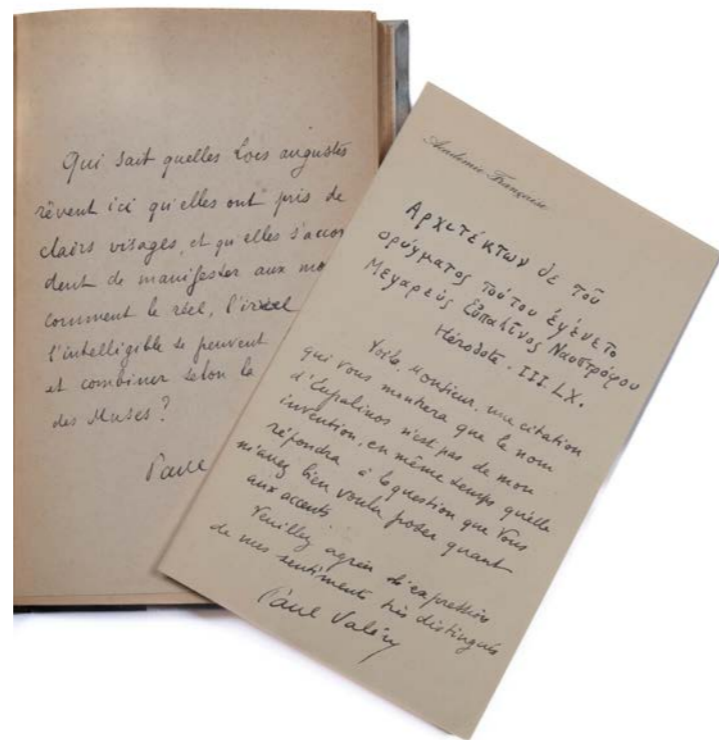 Qui sait quelles Lois augustes
rêvent ici qu'elles ont pris de
clairs visages, et qu'elles s'accor
dent de manifester aux mo
comment le réel, l'irréel
l'intelligible se peuvent
et combiner selon la
des Muses ?
Paul
Académie Française
Αρχιτέκτων δε τοῦ
ορύγματος τούτου ἐγένετο
Μεγαρεὺς Εὐπαλῖνος Ναυστρόφου
Hérodote. III. LX.
Voilà, Monsieur, une citation
qui vous montrera que le nom
d'Eupalinos n'est pas de mon
invention, en même temps qu'elle
répondra à la question que vous
m'avez bien voulu poser quant
aux accents.
Veuillez agréer l'expression
de mes sentiments très distingués
Paul Valéry